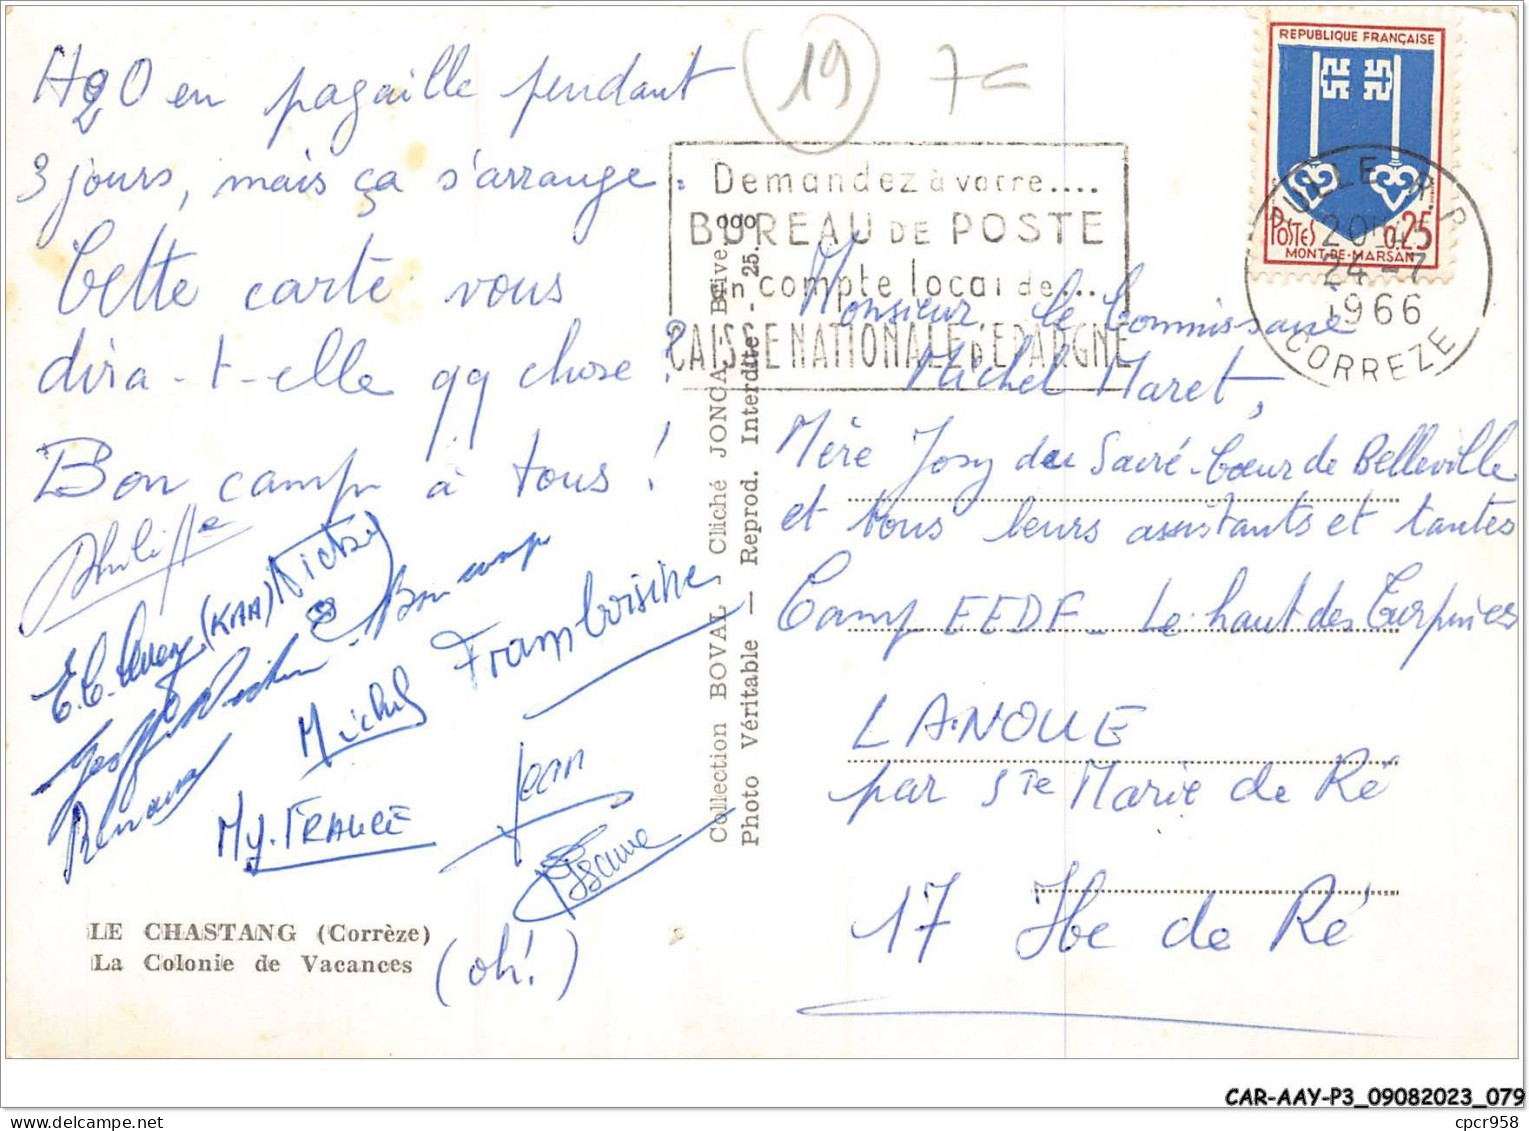 H2O en pagaille pendant
3 jours, mais ça s'arrange.
Cette carte vous
dira-t-elle qq chose?
Bon camp à tous!
Philippe
(KAA)
Bon camp
Michel Framboisine
Renaud
My. FRANCE
Jean
LE CHASTANG (Corrèze)
La Colonie de Vacances
(oh!)
Collection BOVAL, Cliché JONCA, Brive
Photo Véritable — Reprod. Interdite - 25.090
19
7€
Demandez à votre....
BUREAU DE POSTE
un compte local de...
CAISSE NATIONALE D'EPARGNE
REPUBLIQUE FRANÇAISE
POSTES 0.25
MONT-DE-MARSAN
TULLE R.P.
20H
24-7
1966
CORREZE
Monsieur le Commissaire
Michel Maret,
Mère Josy du Sacré-Cœur de Belleville
et tous leurs assistants et tantes
Camp EEDF - Le haut des Turpines
LANOUE
par Ste Marie de Ré
17 Ile de Ré
CAR-AAY-P3_09082023_079
cpcr958